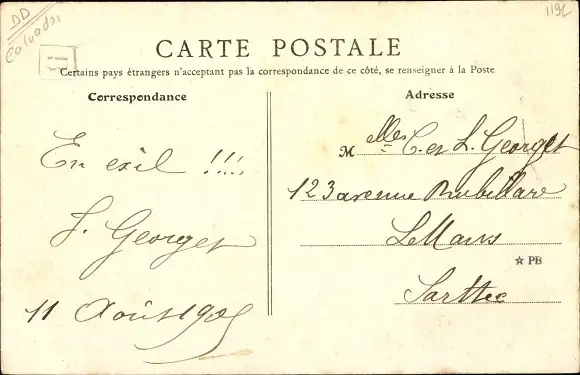 DD
Calvados
113L
CARTE POSTALE
Certains pays étrangers n'acceptant pas la correspondance de ce côté, se renseigner à la Poste
Correspondance
En exil !!!!
J. Georget
11 Août 1905
Adresse
Melles C. et L. Georget
123 avenue Rubillard
Le Mans
☆ PB
Sarthe